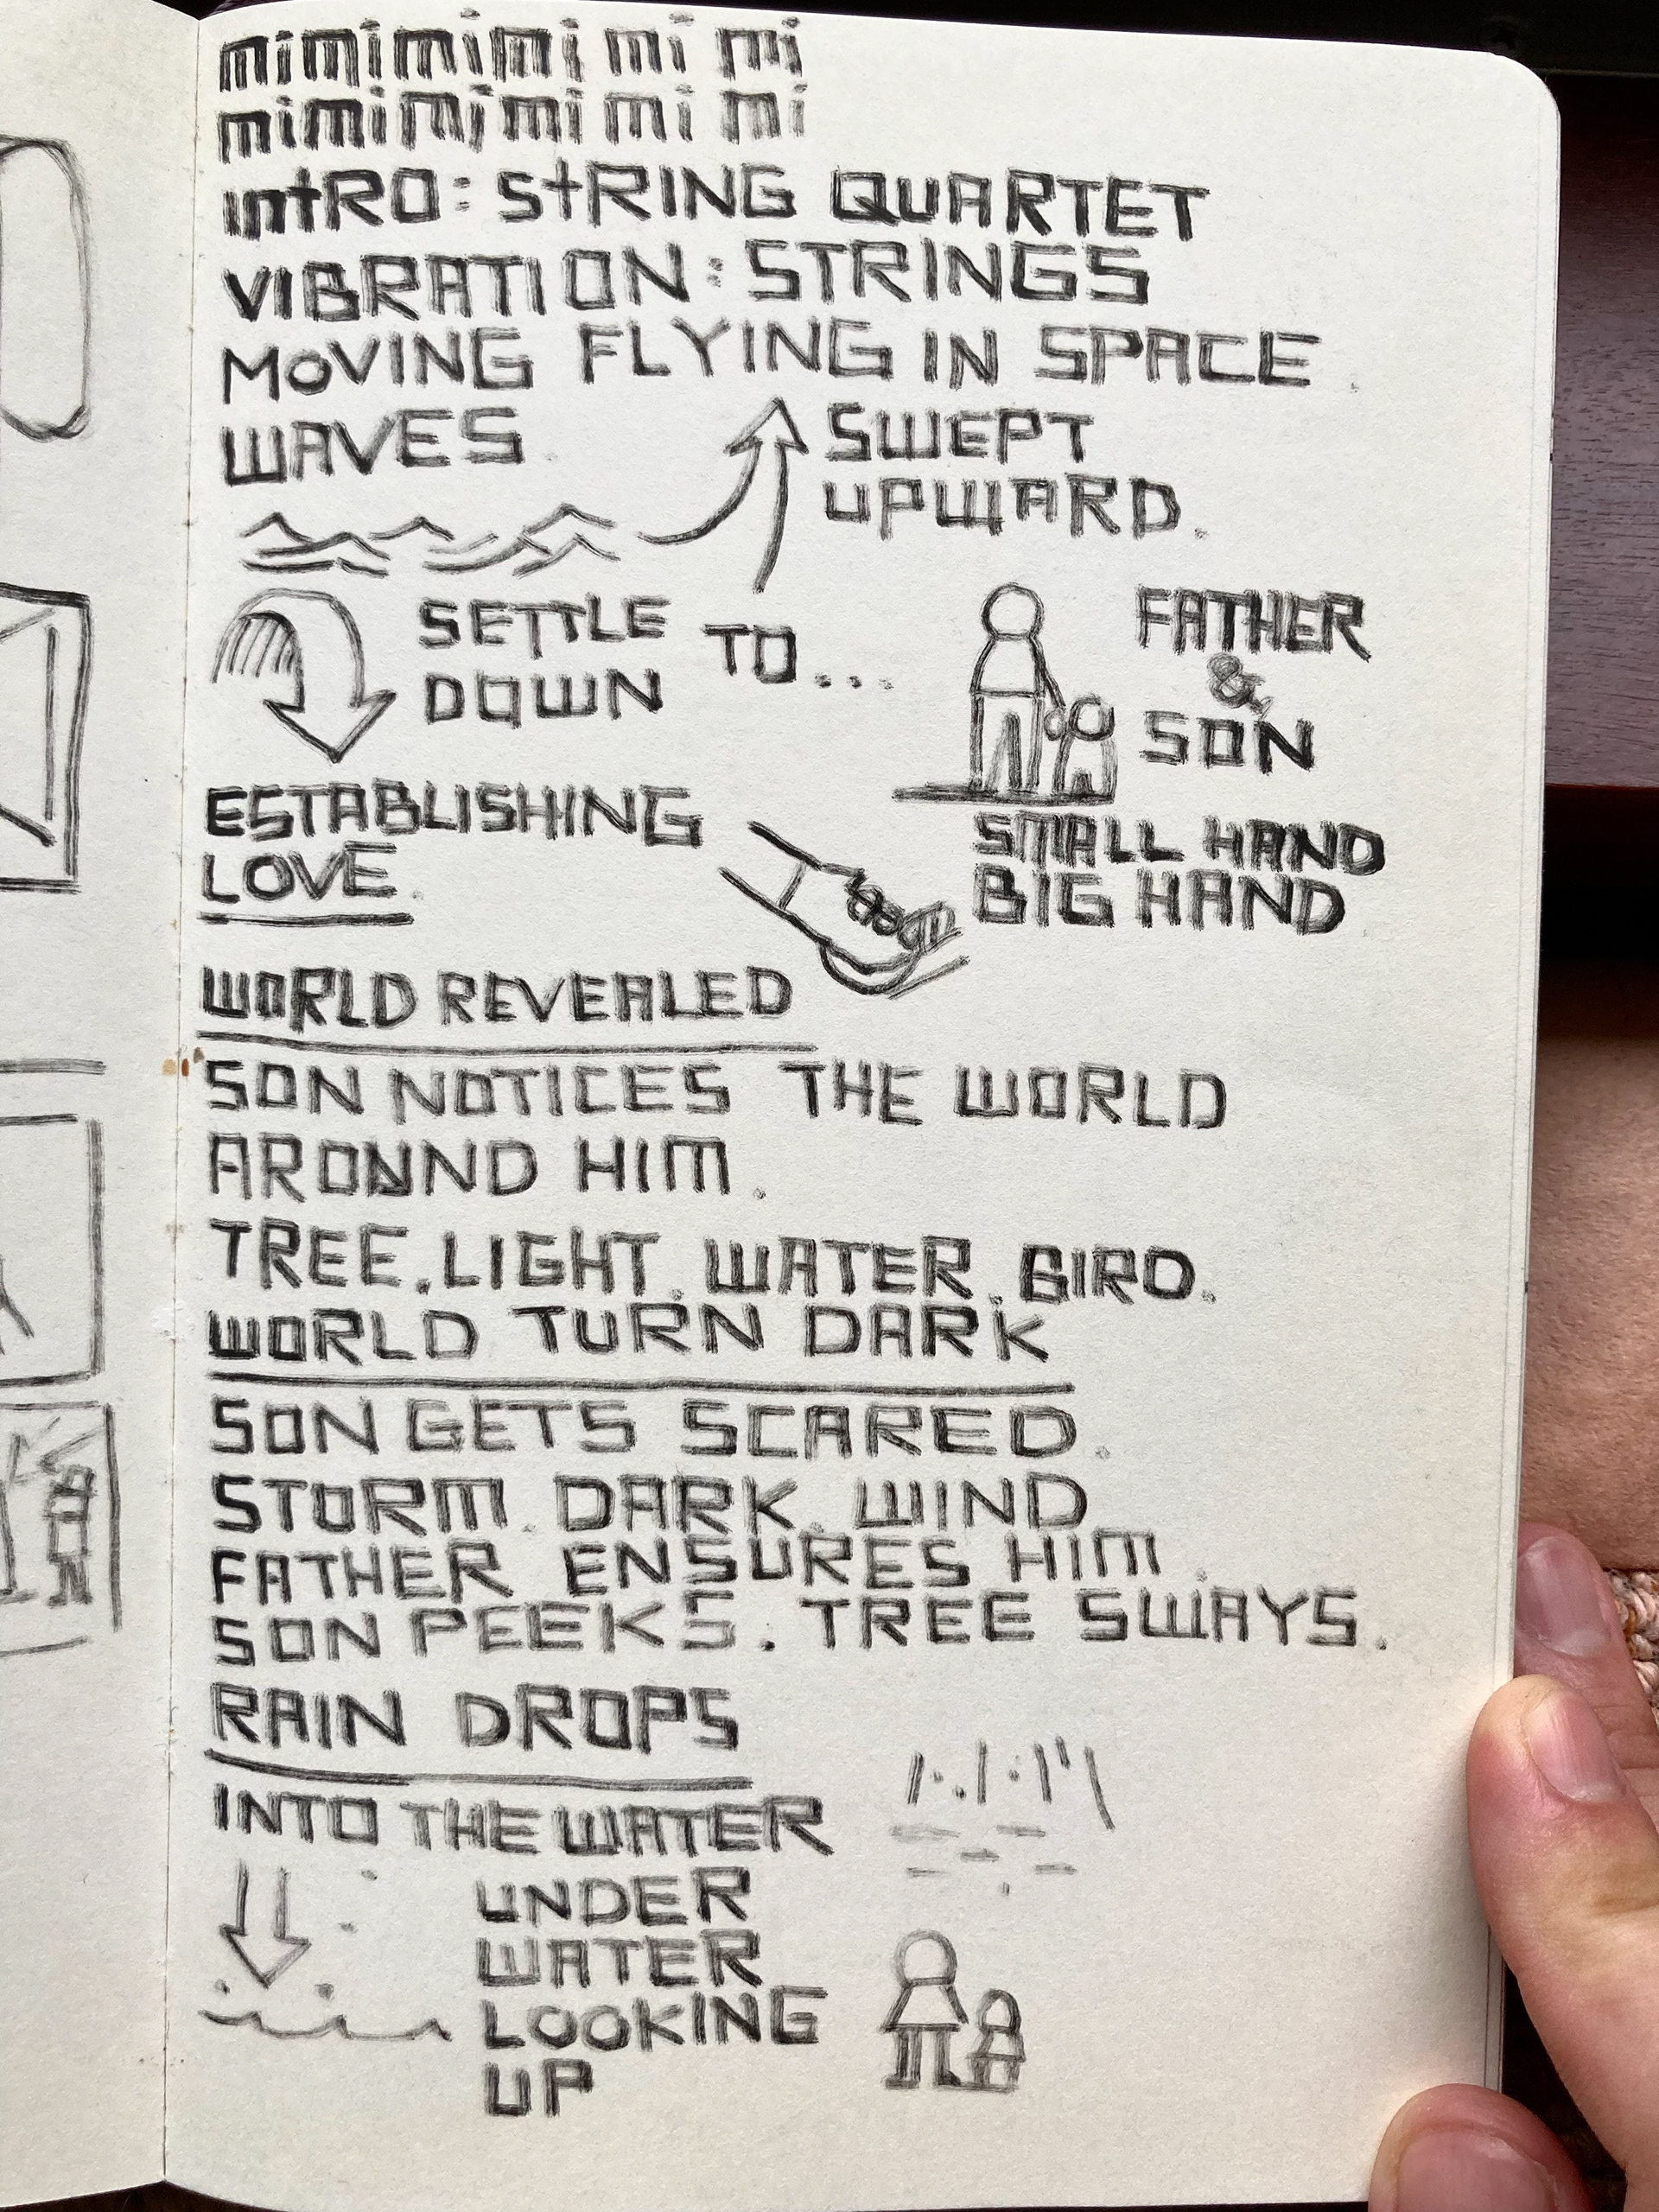 mimimimi mi mi
mimimimi mi mi
intRO: StRING QUARTET
VIBRATION: STRINGS
MOVING FLYING IN SPACE.
WAVES.
SWEPT
UPWARD.
SETTLE
DOWN
TO...
FATHER
&
SON
ESTABLISHING
LOVE.
SMALL HAND
BIG HAND
WORLD REVEALED
SON NOTICES THE WORLD
AROUND HIM.
TREE. LIGHT. WATER. BIRD.
WORLD TURN DARK
SON GETS SCARED.
STORM. DARK. WIND
FATHER ENSURES HIM.
SON PEEKS. TREE SWAYS.
RAIN DROPS
INTO THE WATER
UNDER
WATER
LOOKING
UP